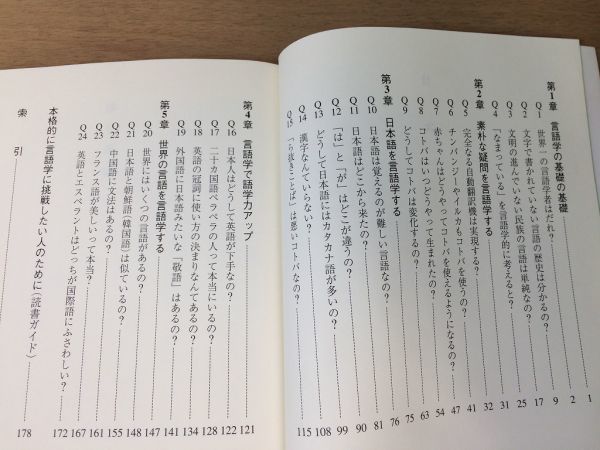 第1章 言語学の基礎の基礎 1
Q1 世界一の言語学者はだれ? 2
Q2 文字で書かれていない言語の歴史は分かるの? 9
Q3 文明の進んでいない民族の言語は単純なの? 17
Q4 「なまっている」を言語学的に考えると? 25
第2章 素朴な疑問を言語学する 31
Q5 完全なる自動翻訳機は実現する? 32
Q6 チンパンジーやイルカもコトバを使うの? 41
Q7 赤ちゃんはどうやってコトバを使えるようになるの? 47
Q8 コトバはいつどうやって生まれたの? 54
Q9 どうしてコトバは変化するの? 63
第3章 日本語を言語学する 75
Q10 日本語は覚えるのが難しい言語なの? 76
Q11 日本語はどこから来たの? 81
Q12 「は」と「が」はどこが違うの? 90
Q13 どうして日本語にはカタカナ語が多いの? 99
Q14 漢字なんていらない? 108
Q15 「ら抜きことば」は悪いコトバなの? 115
第4章 言語学で語学力アップ 121
Q16 日本人はどうして英語が下手なの? 122
Q17 二十カ国語ペラペラの人って本当にいるの? 128
Q18 英語の冠詞に使い方の決まりなんてあるの? 134
Q19 外国語に日本語みたいな「敬語」はあるの? 141
第5章 世界の言語を言語学する 147
Q20 世界にはいくつの言語があるの? 148
Q21 日本語と朝鮮語(韓国語)は似ているの? 155
Q22 中国語に文法はあるの? 161
Q23 フランス語が美しいって本当? 167
Q24 英語とエスペラントはどっちが国際語にふさわしい? 172
本格的に言語学に挑戦したい人のために〈読書ガイド〉 178
索引